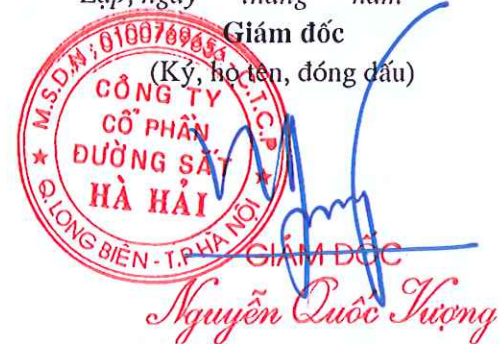 Lập, ngày tháng năm
Giám đốc
(Ký, họ tên, đóng dấu)
M.S.D.N: 0100769656 - C.T.C.P
CÔNG TY
CỔ PHẦN
ĐƯỜNG SẮT
HÀ HẢI
Q. LONG BIÊN - T.P HÀ NỘI
GIÁM ĐỐC
Nguyễn Quốc Vượng